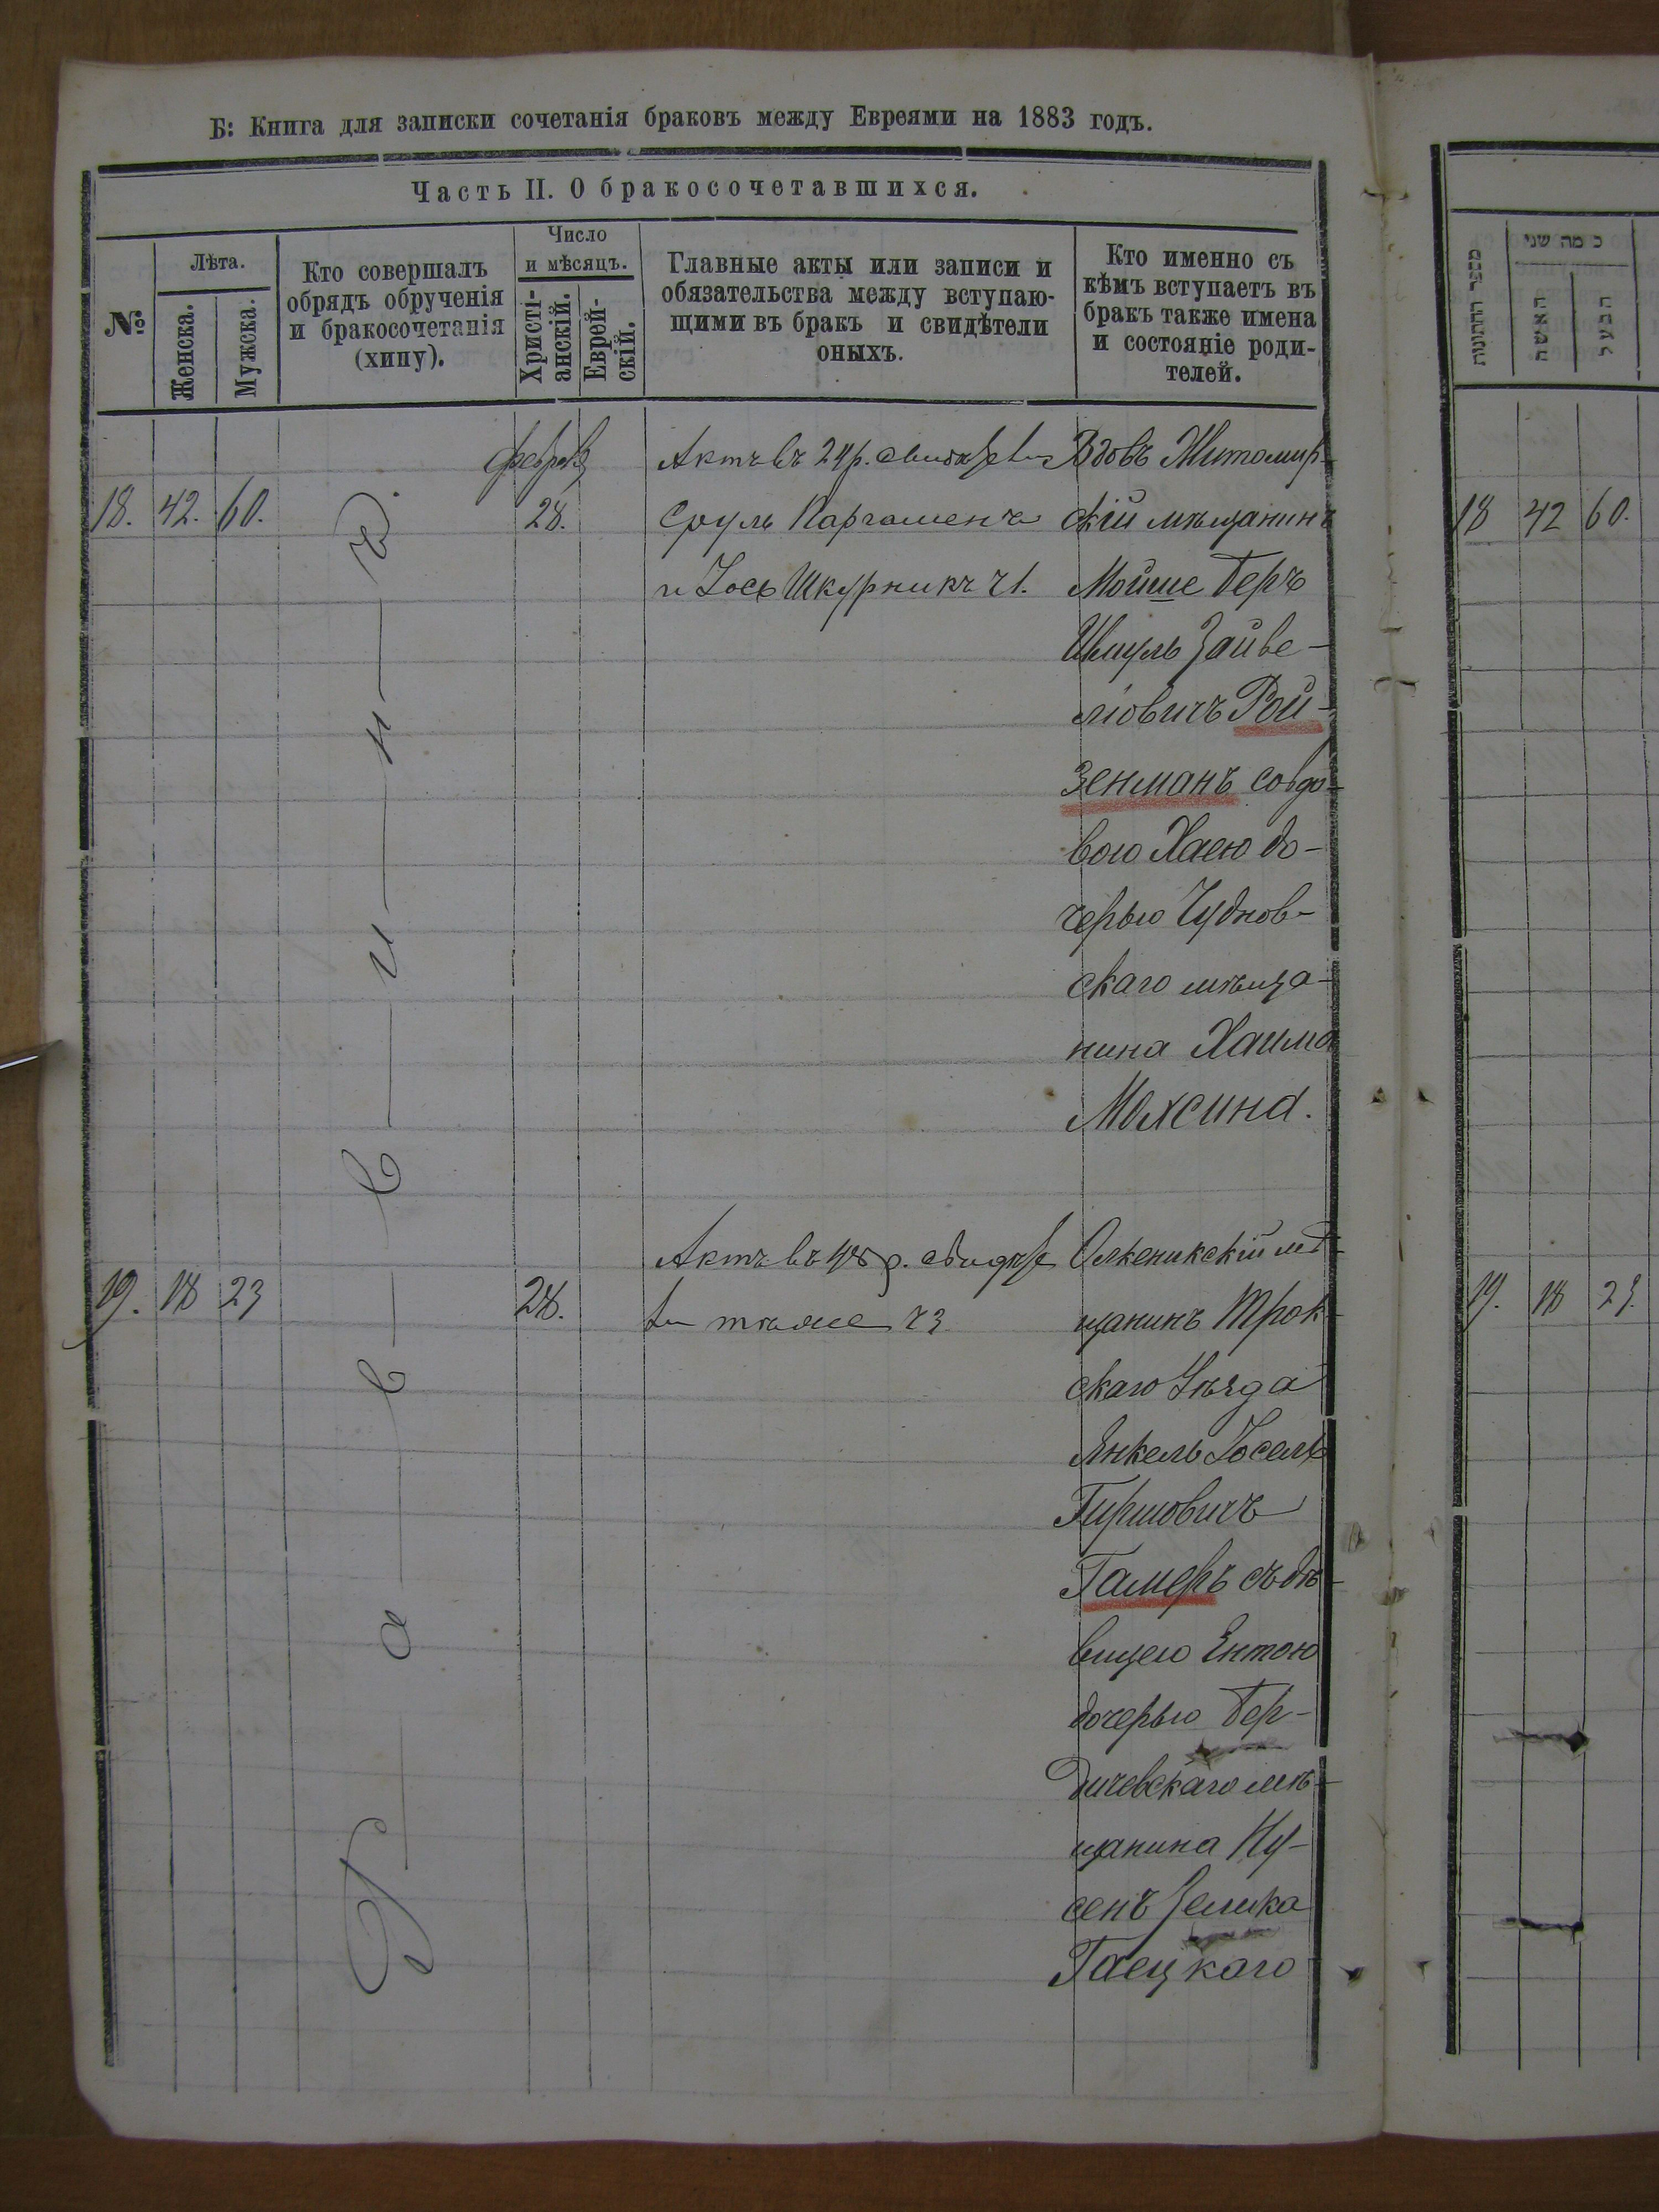 Б: Книга для записки сочетанія браковъ между Евреями на 1883 годъ.
Часть II. О бракосочетавшихся.
№
Лѣта.
Женска.
Мужска.
Кто совершалъ
обрядъ обрученія
и бракосочетанія
(хипу).
Число
и мѣсяцъ.
Христі-
анскій.
Еврей-
скій.
Главные акты или записи и
обязательства между вступаю-
щими въ бракъ и свидѣтели
оныхъ.
Кто именно съ
кѣмъ вступаетъ въ
бракъ также имена
и состояніе роди-
телей.
Раввинъ
18. 42. 60.
28.
Актъ въ 24 р.
Сруль Паргаменъ
и Іось Шкурникъ ч1.
Вдовъ Житомир-
скій мѣщанинъ
Мойше Беръ
Шмуль Зайве-
ліовичъ Рой-
зенманъ со вдо-
вою Хаею до-
черью Чуднов-
скаго мѣща-
нина Хаима
Мохсина.
19. 18 23
28.
Актъ въ 48 р.
тѣже ч3
Олкеникскій мѣ-
щанинъ Трок-
скаго Уѣзда
Янкель Іосель
Гиршовичъ
Гамеръ съ дѣ-
вицею Ентою
дочерью Бер-
дичевскаго мѣ-
щанина Ну-
сенъ Зелика
Гаецкаго
מספר החתונות
כמה שני
האישה
הבעל
18 42 60.
19. 18 23.